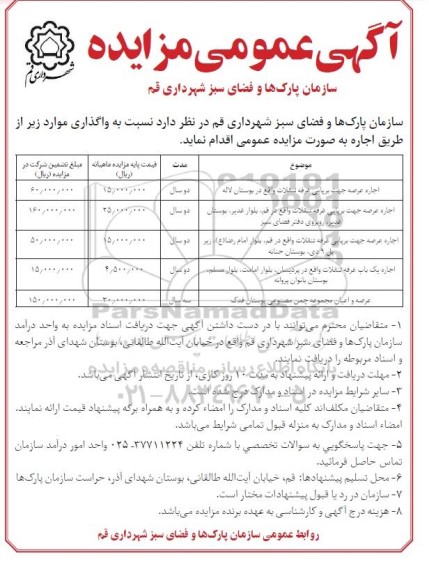 آگهی عمومی مزایده
شهرداری قم
سازمان پارک‌ها و فضای سبز شهرداری قم
سازمان پارک‌ها و فضای سبز شهرداری قم در نظر دارد نسبت به واگذاری موارد زیر از
طریق اجاره به صورت مزایده عمومی اقدام نماید.
موضوع مدت قیمت پایه مزایده ماهیانه (ریال) مبلغ تضمین شرکت در مزایده (ریال)
اجاره عرصه جهت برپایی غرفه تنقلات واقع در بوستان لاله دو سال ۱۵/۰۰۰/۰۰۰ ۶۰/۰۰۰/۰۰۰
اجاره عرصه جهت برپایی غرفه تنقلات واقع در قم، بلوار غدیر، بوستان غدیر، روبروی دفتر فضای سبز دو سال ۲۵/۰۰۰/۰۰۰ ۱۶۰/۰۰۰/۰۰۰
اجاره عرصه جهت برپایی غرفه تنقلات واقع در قم، بلوار امام رضا(ع)، زیر پل ۹ دی، بوستان حنانه دو سال ۱۵/۰۰۰/۰۰۰ ۵۰/۰۰۰/۰۰۰
اجاره یک باب غرفه تنقلات واقع در پردیسان، بلوار امامت، بلوار مسلم، بوستان بانوان پروانه دو سال ۴/۵۰۰/۰۰۰ ۱۵/۰۰۰/۰۰۰
عرصه و اعیان مجموعه چمن مصنوعی بوستان فدک سه سال ۳۰/۰۰۰/۰۰۰ ۱۵۰/۰۰۰/۰۰۰
ParsNamadData
۱- متقاضیان محترم می‌توانند با در دست داشتن آگهی جهت دریافت اسناد مزایده به واحد درآمد
سازمان پارک‌ها و فضای سبز شهرداری قم واقع در خیابان آیت‌الله طالقانی، بوستان شهدای آذر مراجعه
و اسناد مربوطه را دریافت نمایند.
۲- مهلت دریافت و ارائه پیشنهاد به مدت ۱۰ روز کاری، از تاریخ انتشار آگهی می‌باشد.
۳- سایر شرایط مزایده در اسناد و مدارک درج شده است.
۴- متقاضیان مکلف‌اند کلیه اسناد و مدارک را امضاء کرده و به همراه برگه پیشنهاد قیمت ارائه نمایند.
امضاء اسناد و مدارک به منزله قبول تمامی شرایط می‌باشد.
۵- جهت پاسخگویي به سوالات تخصصي با شماره تلفن ۳۷۷۱۱۲۲۴-۰۲۵ واحد امور درآمد سازمان
تماس حاصل فرمائید.
۶- محل تسلیم پیشنهادها: قم، خیابان آیت‌الله طالقانی، بوستان شهدای آذر، حراست سازمان پارک‌ها
۷- سازمان در رد یا قبول پیشنهادات مختار است.
۸- هزینه درج آگهی و کارشناسی به عهده برنده مزایده می‌باشد.
روابط عمومی سازمان پارک‌ها و فضای سبز شهرداری قم